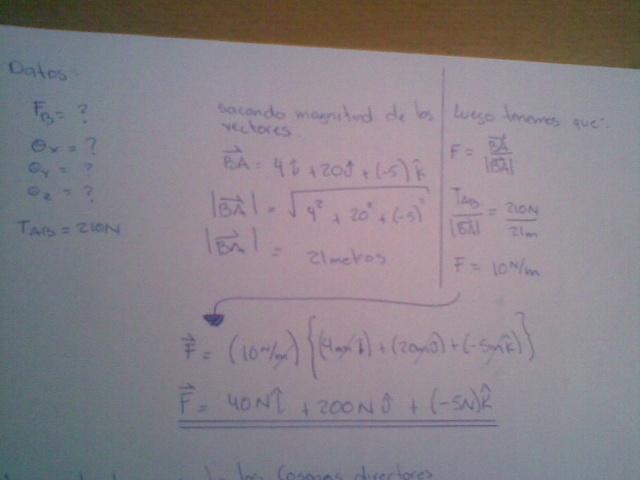 Datos:
F_B = ?
θx = ?
θy = ?
θz = ?
T_AB = 210N
sacando magnitud de los
vectores
BA⃗ = 4î + 20ĵ + (-5)k̂
|BA⃗| = √4² + 20² + (-5)²
|BA⃗| = 21 metros
Luego tenemos que:
F = BA⃗/|BA⃗|
T_AB/|BA⃗| = 210N/21m
F = 10 N/m
F⃗ = (10 N/m) {(4m î) + (20m ĵ) + (-5m k̂)}
F⃗ = 40N î + 200N ĵ + (-5N)k̂
los Cosenos directores